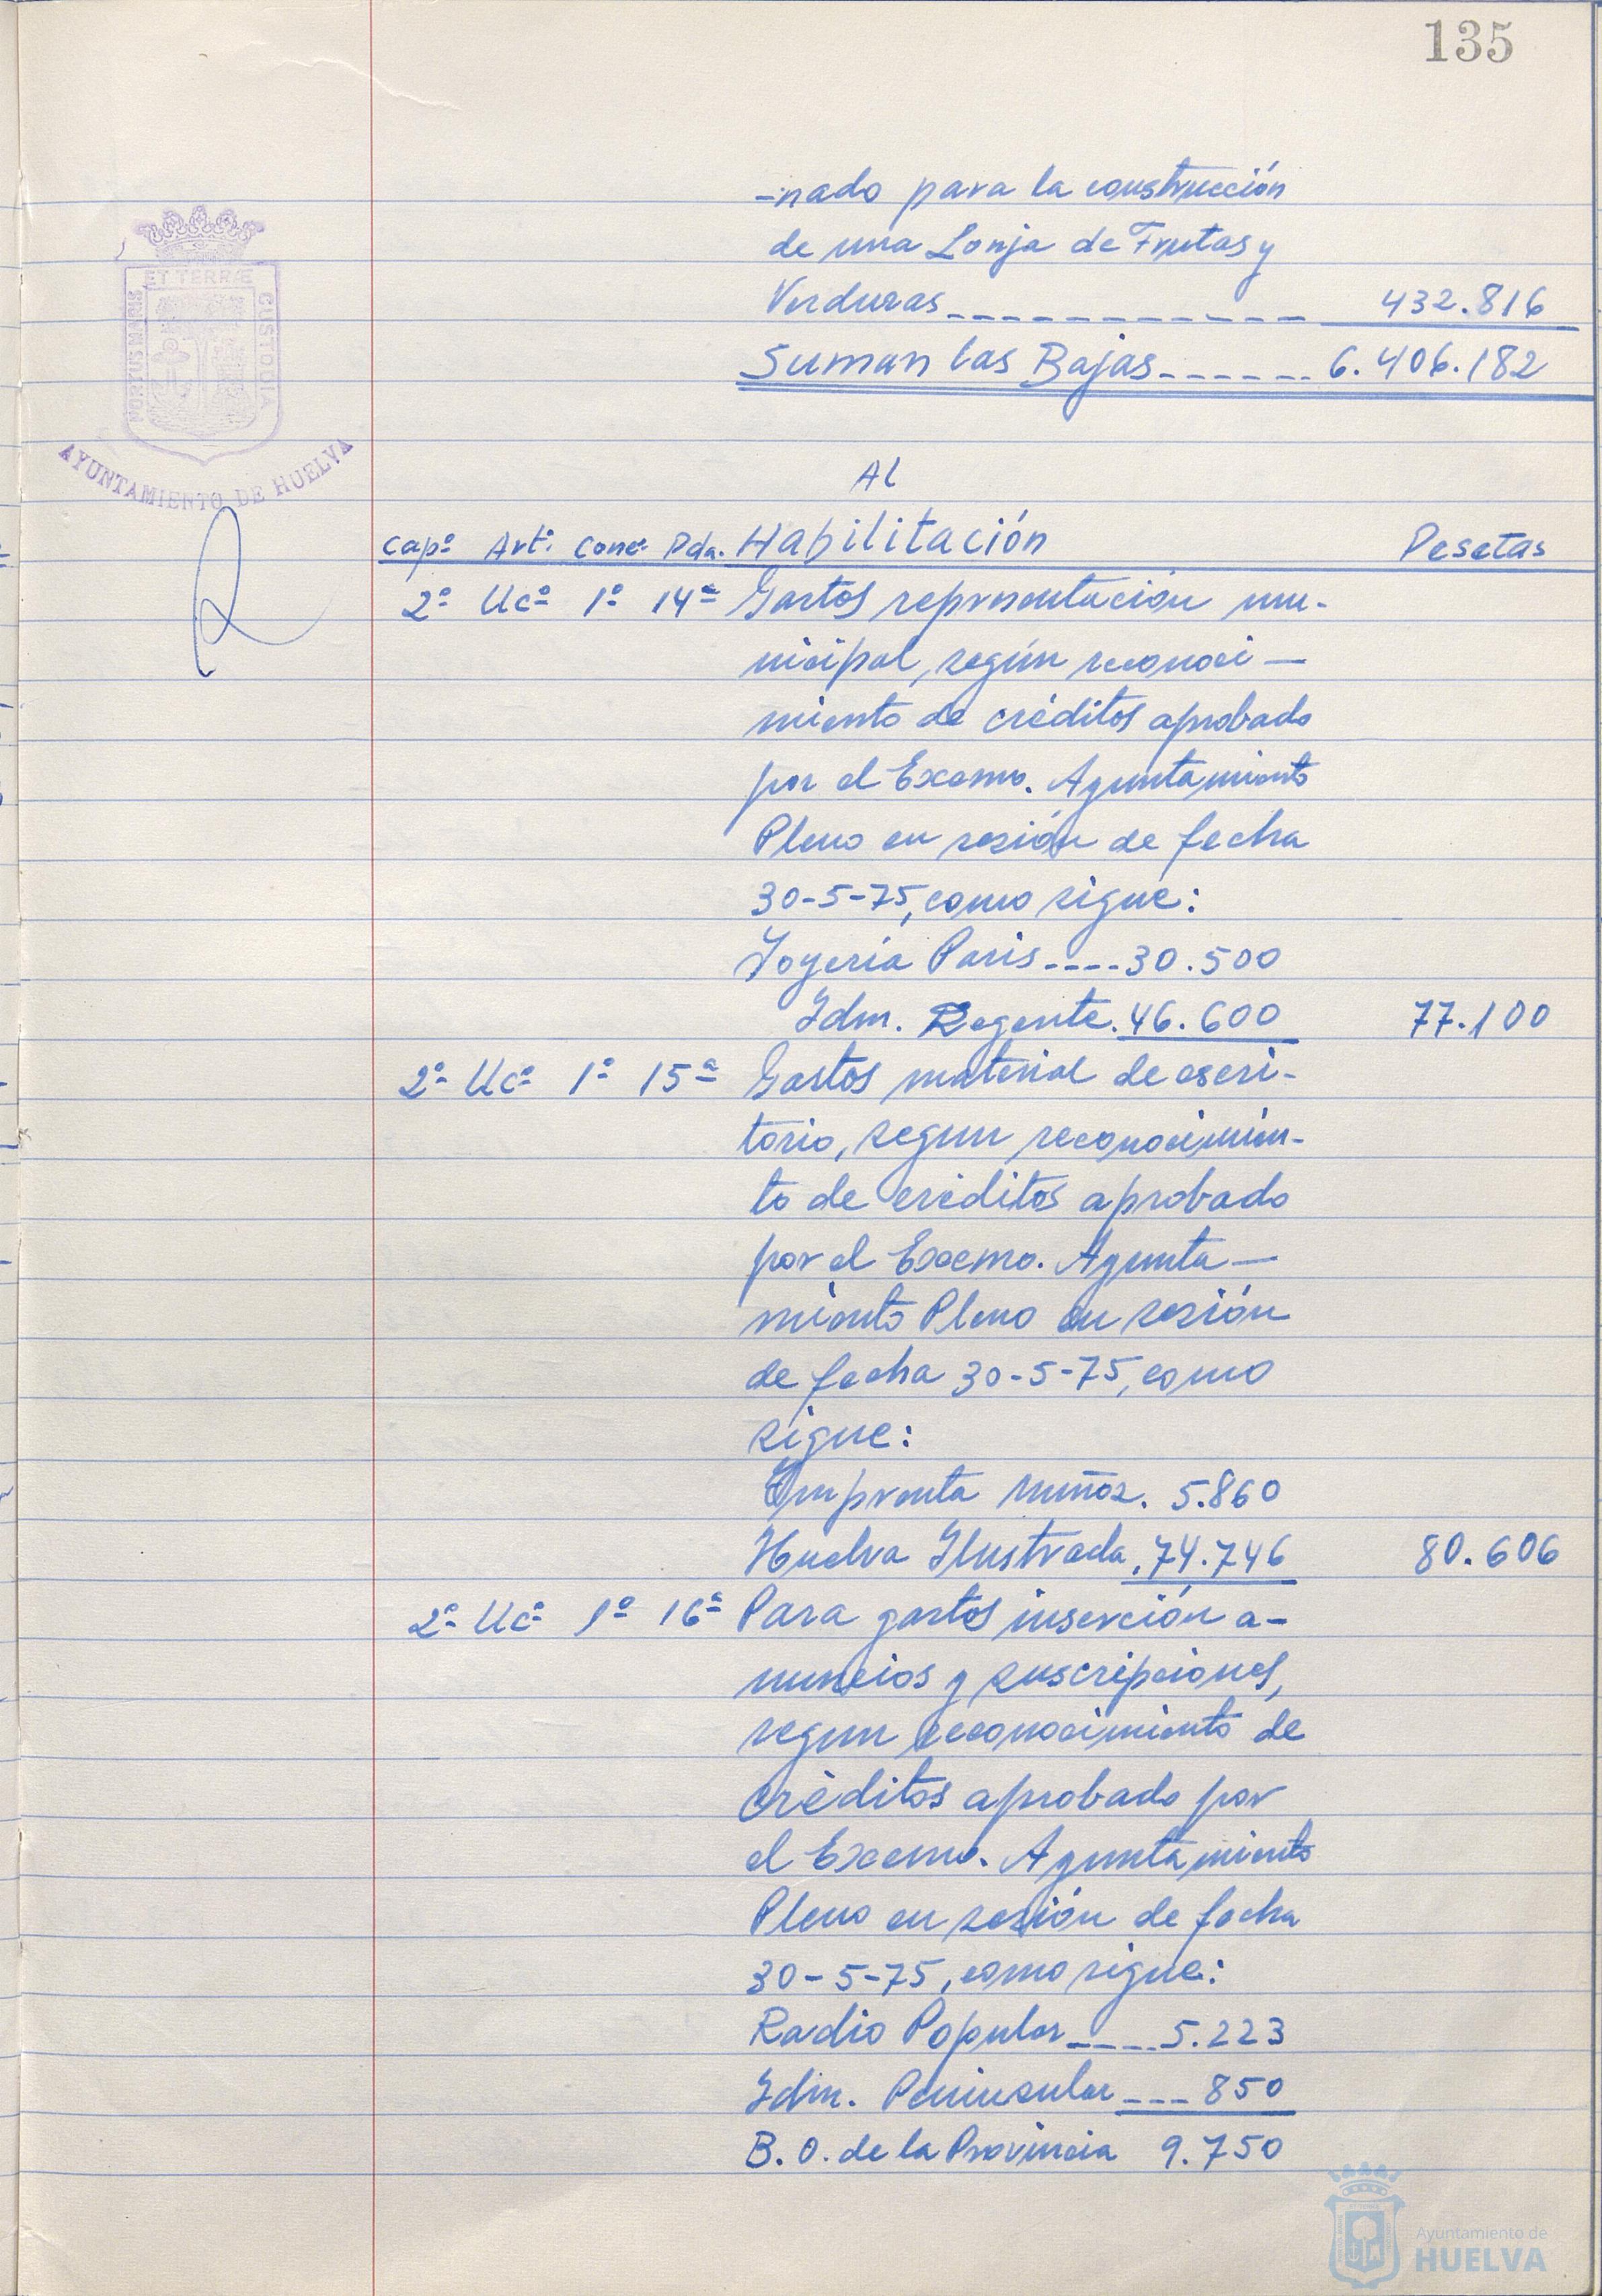 135
-nado para la construcción
de una Lonja de Frutas y
Verduras____________ 432.816
Suman las Bajas______ 6.406.182
PORTUS MARIS ET TERRÆ CUSTODIA
AYUNTAMIENTO DE HUELVA
Al
Capº Artº Concº Pda. Habilitación Pesetas
2º Ucº 1º 14ª Gastos representación mu-
nicipal, según reconoci-
miento de créditos aprobado
por el Excmo. Ayuntamiento
Pleno en sesión de fecha
30-5-75, como sigue:
Joyería Paris----30.500
Idm. Regente. 46.600 77.100
2º Ucº 1º 15ª Gastos material de escri-
torio, segun reconocimien-
to de créditos aprobado
por el Excmo. Ayunta-
miento Pleno en sesión
de fecha 30-5-75, como
sigue:
Imprenta Muñoz. 5.860
Huelva Ilustrada.74.746 80.606
2º Ucº 1º 16ª Para gastos inserción a-
nuncios y suscripciones,
segun reconocimiento de
créditos aprobado por
el Excmo. Ayuntamiento
Pleno en sesión de fecha
30-5-75, como sigue:
Radio Popular____5.223
Idm. Peninsular___850
B. O. de la Provincia 9.750
Ayuntamiento de
HUELVA